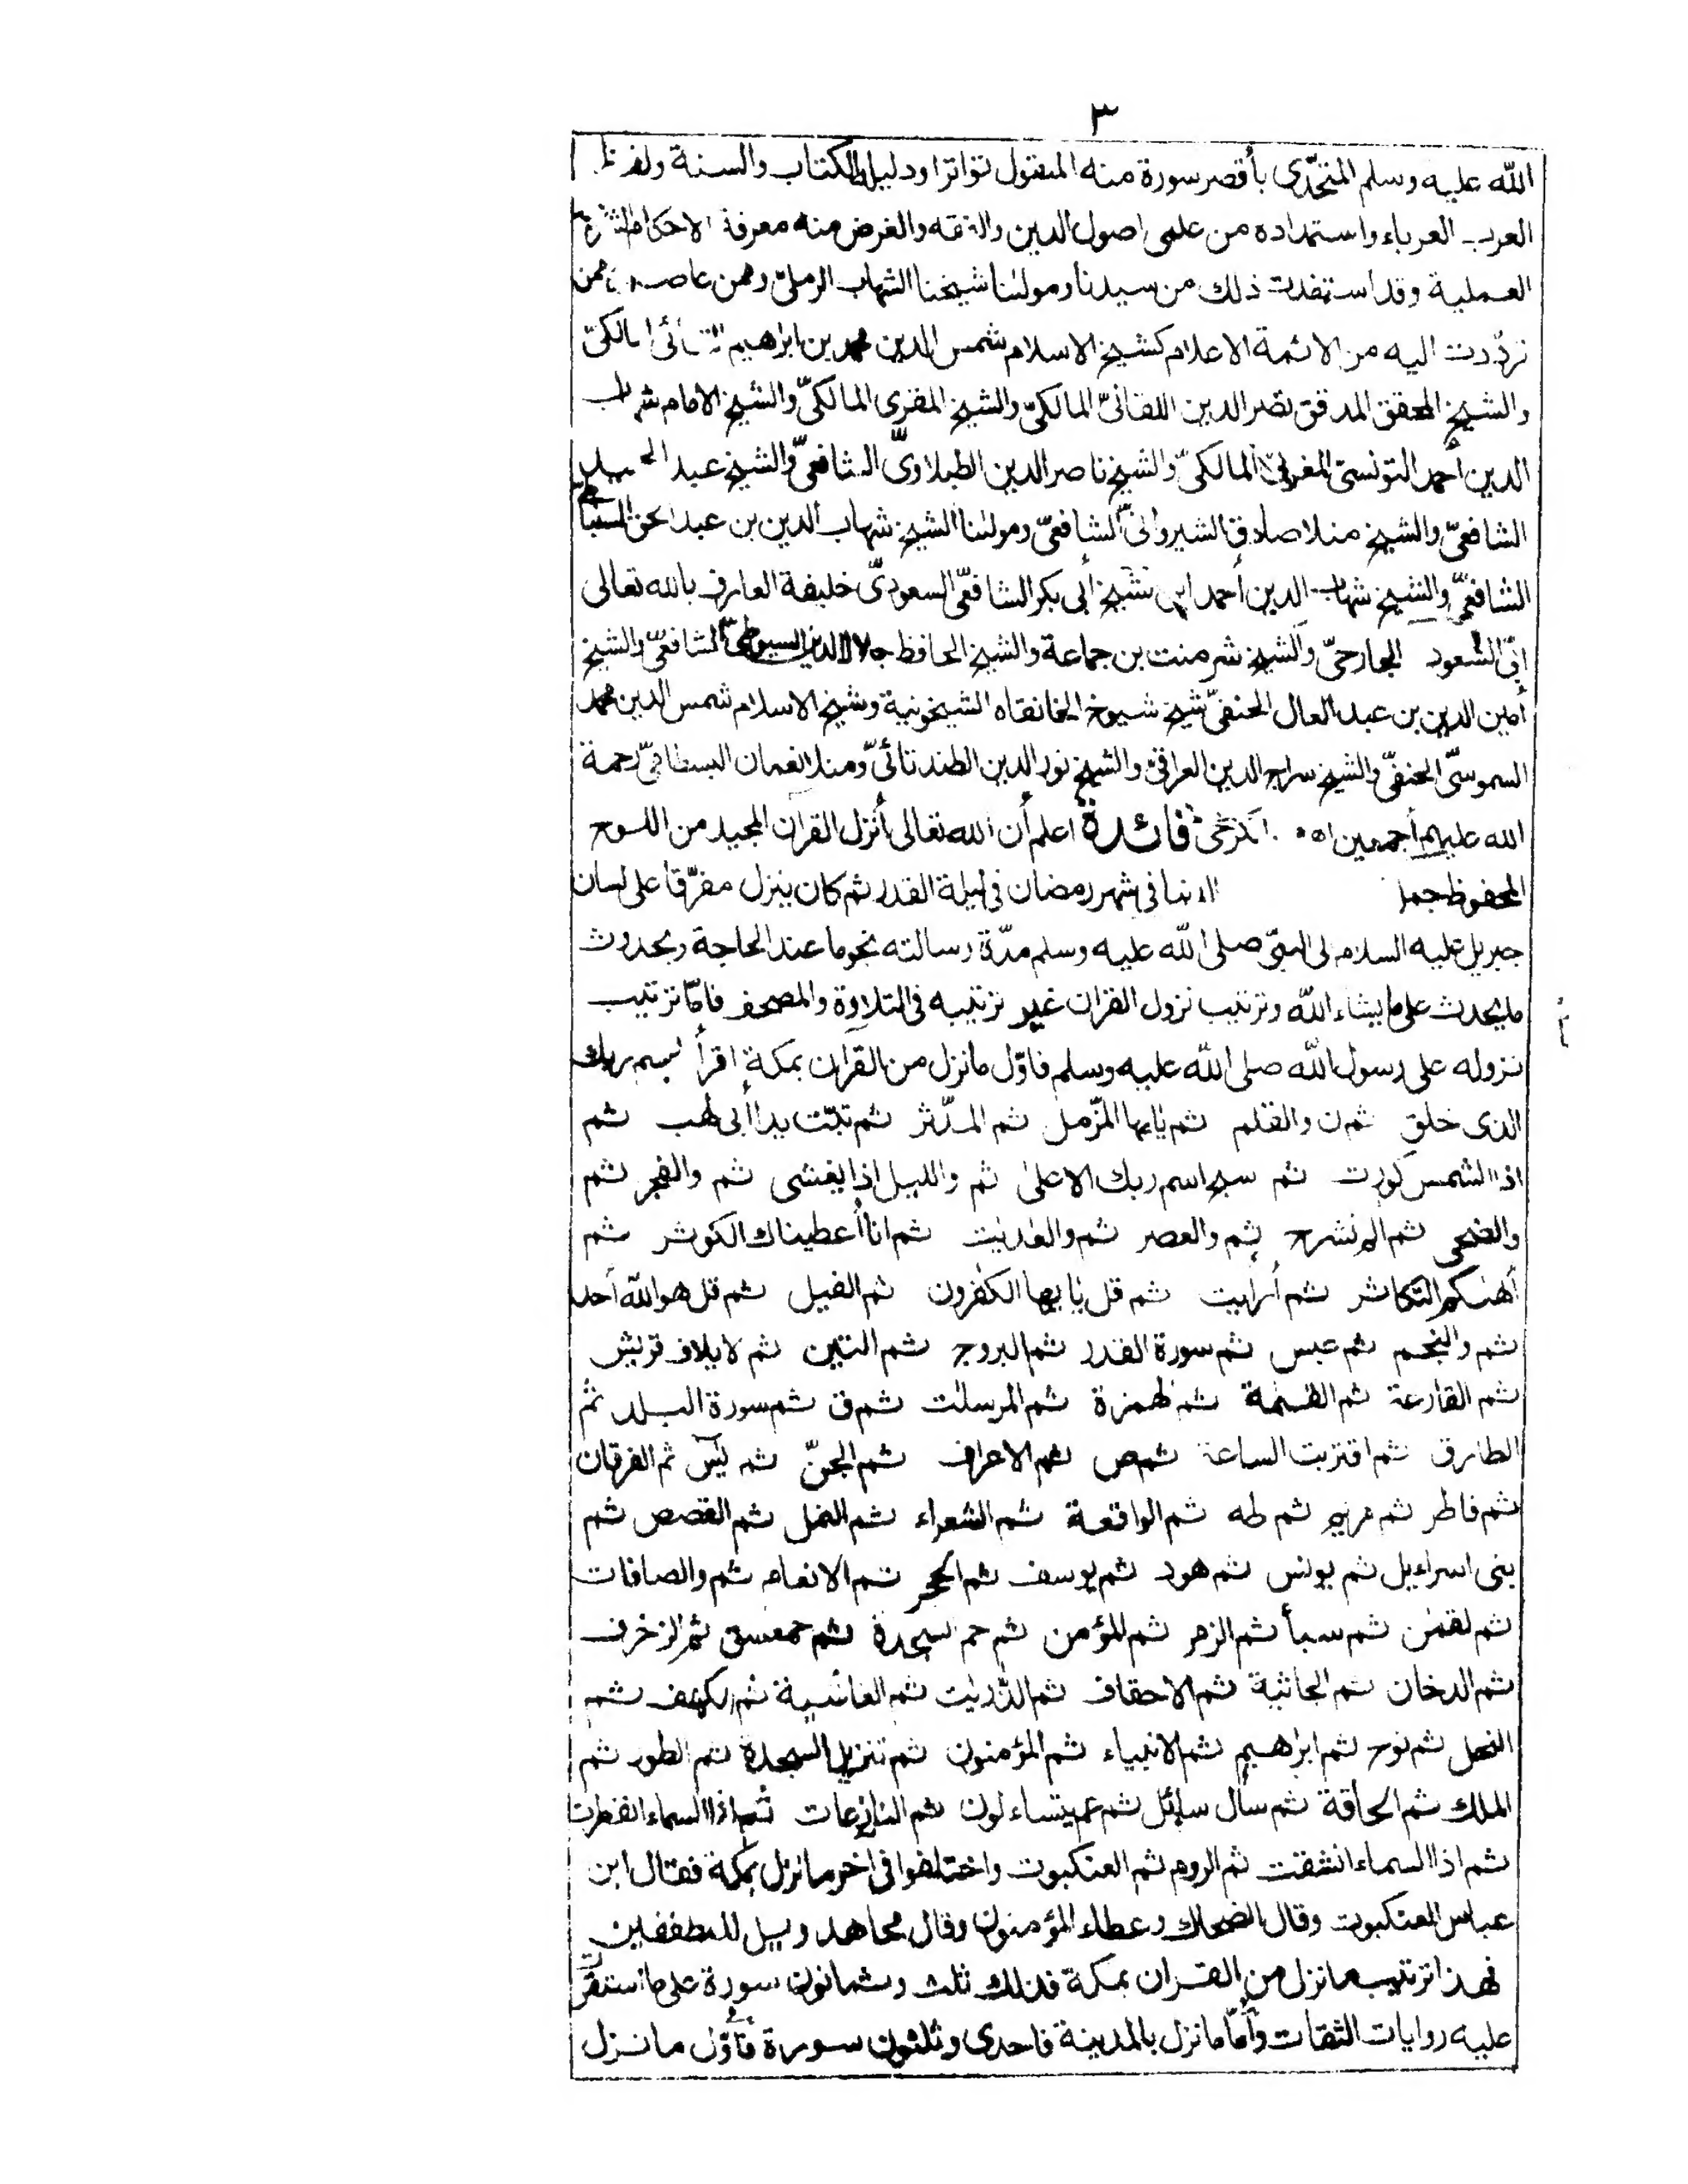 ٣
الله عليه وسلم المتحدّى بأقصر سورة منه المنقول تواترا ودليله الكتاب والسنة ولغة
العرب العرباء واستمداده من علمى اصول الدين والفقه والغرض منه معرفة الاحكام الشرعية
العملية وقد استفدت ذلك من سيدنا ومولنا شيخنا الشهاب الرملىّ وممن عاصره ممن
تردّدت اليه من الائمة الاعلام كشيخ الاسلام شمس الدين محمد بن ابراهيم التتائى المالكىّ
والشيخ المحقق المدقق نصر الدين اللقانىّ المالكىّ والشيخ المقرى المالكىّ والشيخ الامام شهاب
الدين أحمد التونسىّ المغربىّ المالكىّ والشيخ ناصر الدين الطبلاوىّ الشافعىّ والشيخ عبد الحميد
الشافعىّ والشيخ منلا صادق الشيروانىّ الشافعىّ ومولنا الشيخ شهاب الدين بن عبد الحق السنباطىّ
الشافعىّ والشيخ شهاب الدين أحمد ابن شيخ أبى بكر الشافعىّ السعودىّ خليفة العارف بالله تعالى
ابى السعود الجارحىّ والشيخ شرمنت بن جماعة والشيخ الحافظ جلال الدين السيوطىّ الشافعىّ والشيخ
أمين الدين بن عبد العال الحنفىّ شيخ شيوخ الخانقاه الشيخونية وشيخ الاسلام شمس الدين محمد
السموسىّ الحنفىّ والشيخ سراج الدين العراقىّ والشيخ نور الدين الطندتائىّ ومنلا نعمان البسطامىّ رحمة
الله عليهم أجمعين اه الكرخىّ فائدة اعلم أن الله تعالى أنزل القران المجيد من اللوح
المحفوظ جملة الدنيا فى شهر رمضان فى ليلة القدر ثم كان ينزل مفرّقا على لسان
جبريل عليه السلام الى النبىّ صلى الله عليه وسلم مدّة رسالته نجوما عند الحاجة وبحدوث
ما يحدث على ما يشاء الله وترتيب نزول القران غير ترتيبه فى التلاوة والمصحف فامّا ترتيب
نزوله على رسول الله صلى الله عليه وسلم فاوّل ما نزل من القران بمكة اقرأ بسم ربك
الذى خلق ثم ن والقلم ثم يايها المزّمل ثم المدّثر ثم تبّت يدا أبى لهب ثم
اذا الشمس كورت ثم سبح اسم ربك الاعلى ثم والليل اذا يغشى ثم والفجر ثم
والضحى ثم الم نشرح ثم والعصر ثم والعديت ثم انا أعطيناك الكوثر ثم
ألهىكم التكاثر ثم أرايت ثم قل يا يها الكفرون ثم الفيل ثم قل هو الله أحد
ثم والنجم ثم عبس ثم سورة القدر ثم البروج ثم التين ثم لايلاف قريش
ثم القارعة ثم القيمة ثم الهمزة ثم المرسلت ثم ق ثم سورة البلد ثم
الطارق ثم اقتربت الساعة ثم ص ثم الاعراف ثم الجنّ ثم يس ثم الفرقان
ثم فاطر ثم مريم ثم طه ثم الواقعة ثم الشعراء ثم النمل ثم القصص ثم
بنى اسراءيل ثم يونس ثم هود ثم يوسف ثم الحجر ثم الانعام ثم والصافات
ثم لقمن ثم سبأ ثم الزمر ثم المؤمن ثم حم السجدة ثم حمعسق ثم الزخرف
ثم الدخان ثم الجاثية ثم الاحقاف ثم الذّريت ثم الغاشية ثم الكهف ثم
النحل ثم نوح ثم ابراهيم ثم الانبياء ثم المؤمنون ثم تنزيل السجدة ثم الطور ثم
الملك ثم الحاقة ثم سأل سائل ثم عم يتساءلون ثم النازعات ثم اذا السماء انفطرت
ثم اذا السماء انشقت ثم الروم ثم العنكبوت واختلفوا فى اخر ما نزل بمكة فقال ابن
عباس العنكبوت وقال الضحاك وعطاء المؤمنون وقال مجاهد ويل للمطففين
فهذا ترتيب ما نزل من القران بمكة فذلك ثلث وثمانون سورة على ما استقرّت
عليه روايات الثقات وأمّا ما نزل بالمدينة فاحدى وثلثون سورة فأوّل ما نزل